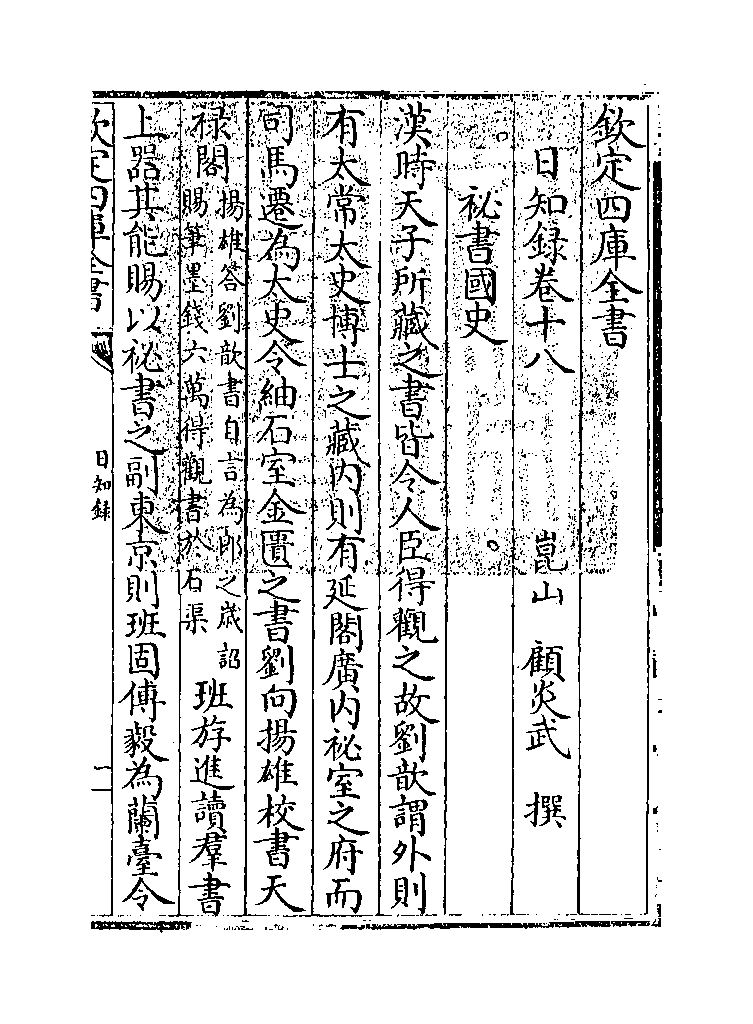 欽定四庫全書
日知録卷十八
崑山 顧炎武 撰
祕書國史
漢時天子所藏之書皆令人臣得觀之故劉歆謂外則
有太常太史博士之藏内則有延閣廣内祕室之府而
司馬遷為太史令紬石室金匱之書劉向揚雄校書天
禄閣揚雄答劉歆書自言為郎之歳詔
賜筆墨錢六萬得觀書於石渠班斿進讀羣書
上器其能賜以祕書之副東京則班固傅毅為蘭臺令
欽定四庫全書
日知録
一